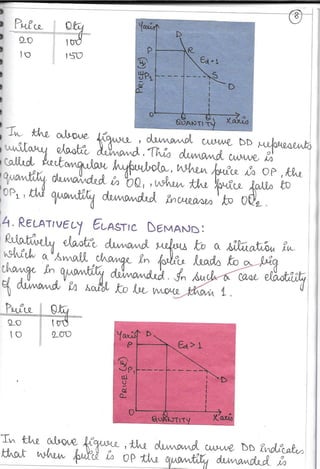 8
Price Qty
20 100
10 150
Yaxis
D
P R
Ed=1
P1 S
D
PRICE (₹)
O
QUANTITY Xaxis
In the above figure, demand curve DD represents
unitary elastic demand. This demand curve is
called rectangular hyperbola. When price is OP, the
quantity demanded is OQ1, when the price falls to
OP1, the quantity demanded increases to OQ2.
4. RELATIVELY ELASTIC DEMAND:
Relatively elastic demand refers to a situation in
which a small change in price leads to a big
change in quantity demanded. In such a case elasticity
of demand is said to be more than 1.
Price Qty
20 100
10 200
Yaxis D
P Ed>1
P1
D
PRICE (₹)
O
QUANTITY Xaxis
In the above figure, the demand curve DD indicates
that when price is OP the quantity demanded is